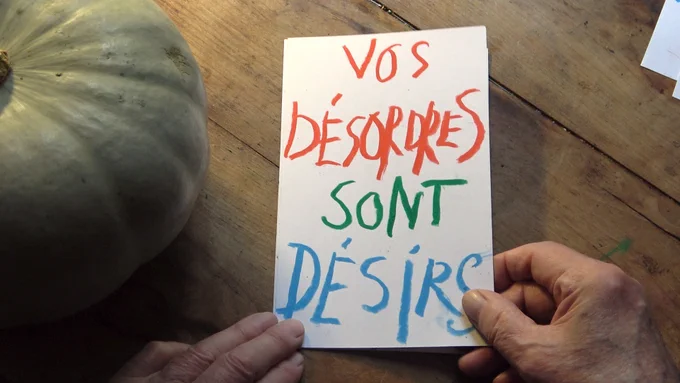 VOS
DÉSORDRES
SONT
DÉSIRS